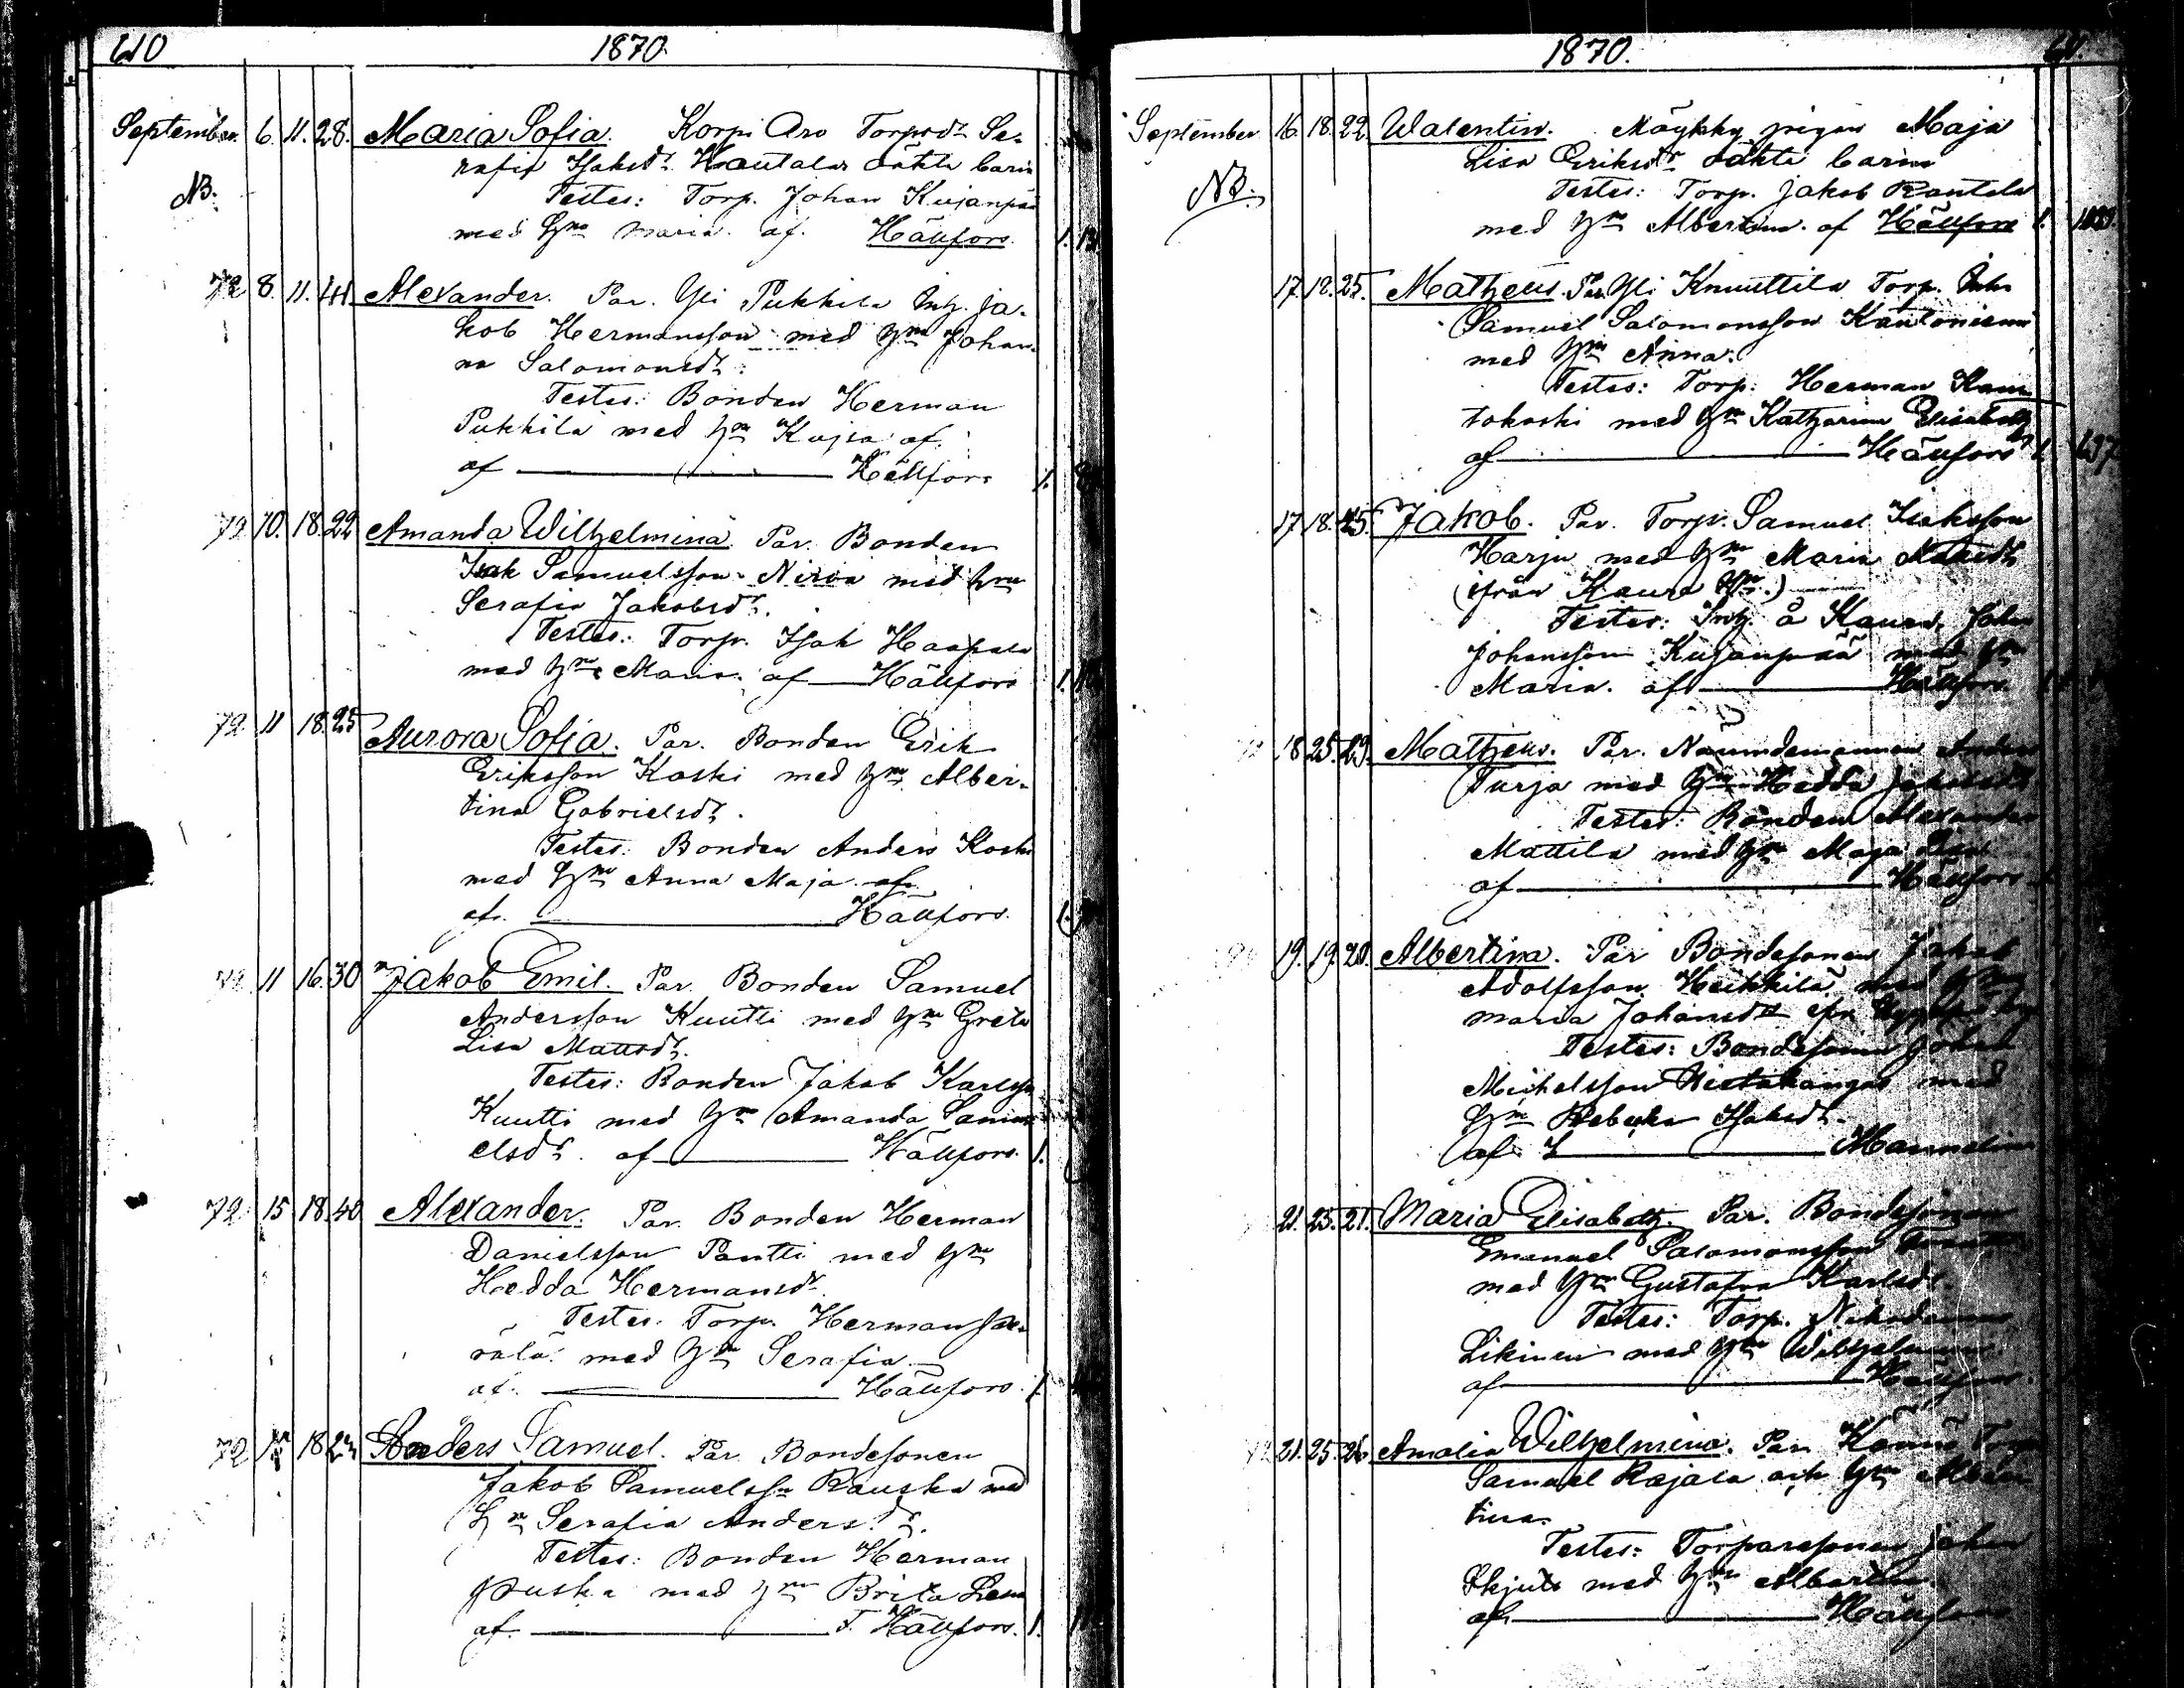 610
1870.
September. 6. 11. 28. Maria Sofia. Korpi Aro Torpsdr Se-
rafia Isaksdr Hautalas oäkta barn
NB.
Testes: Torp. Johan Kujanpää
med Hru Maria. af. Hällfors. 1.
72 8. 11. 41. Alexander. Par. Yli Pukkila Inh. Ja-
kob Hermansson med Hru Johan-
na Salomonsdr.
Testes: Bonden Herman
Pukkila med Hru Kajsa af.
af Hällfors 1.
72 10. 18. 22 Amanda Wilhelmina. Par. Bonden
Isak Samuelsson Nirva med Hru
Serafia Jakobsdr.
Testes: Torp. Isak Haapala
med Hru Maria. af Hällfors 1.
72 11 18. 25 Aurora Sofia. Par. Bonden Erik
Eriksson Koski med Hru Alber-
tina Gabrielsdr.
Testes: Bonden Anders Koski
med Hru Anna Maja. af.
af. Hällfors. 1.
72 11 16. 30 Jakob Emil. Par. Bonden Samuel
Andersson Kuutti med Hru Greta
Lisa Mattsdr.
Testes: Bonden Jakob Karlsson
Kuutti med Hru Amanda Samu
elsdr. af Hällfors. 1.
72 15 18. 40 Alexander. Par. Bonden Herman
Danielsson Pantti med Hru
Hedda Hermansdr.
Testes. Torp. Herman
rälä. med Hru Serafia.
af. Hällfors. 1.
72 18 Anders Samuel. Par. Bondesonen
Jakob Samuelssn Rauska med
Hru Serafia Andersdr.
Testes: Bonden Herman
Puska med Hru Brita Lena
af. Hällfors. 1.
1870.
September 16. 18. 22. Walentin. Mäykky pigan Maja
Lisa Eriksdr oäkta barn
NB.
Testes: Torp. Jakob Rautala
med Hru Albertina. af Hällfors 1.
17. 18. 25. Matheus. Par. Yli Knuuttila Torp.
Samuel Salomonsson Kantoniemi
med Hru Anna.
Testes: Torp. Herman Kan
tokoski med Hru Katharina Elisabeth
af Hällfors 1. 637
17 18. 25. Jakob. Par. Torp. Samuel Isaksson
Harju med Hru Maria
(ifrån Kaura)
Testes: Inh. å Kaura. Johan
Johansson Kujanpää med Hru
Maria. af Hällfors.
18 25. 29. Matheus. Par. Nämndemannen Anders
Turja med Hru Hedda Jakobsdr
Testes: Bonden Alexander
Mattila med Hru Maja Lisa
af Hällfors
19. 19. 20. Albertina. Par Bondesonen Jakob
Adolfsson Heikkilä med Hru
Maria Johansdr
Testes: Bondesonen Johan
Michelsson Hietakangas med
Hru Rebecka Isaksdr.
af Hannelius
21. 25. 21. Maria Elisabeth. Par. Bondesonen
Emanuel Salomonsson
med Hru Gustafva Karlsdr.
Testes: Torp. Nikodemus
Likinen med Hru Wilhelmina
af Hällfors.
21. 25. 26. Amalia Wilhelmina. Par. Torp.
Samuel Rajala och Hru Alber
tina.
Testes: Torparesonen Johan
med Hru Albertina
af. Hällfors